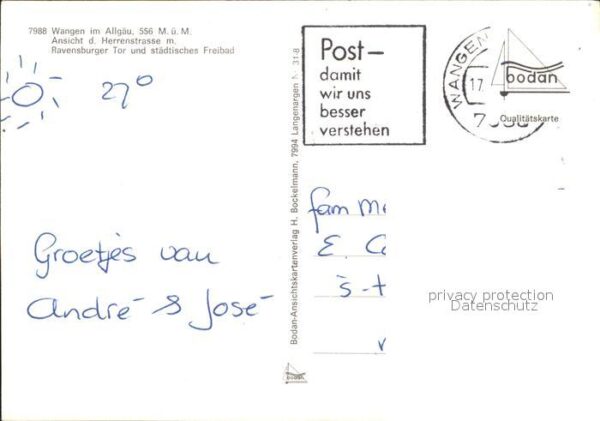 7988 Wangen im Allgäu, 556 M. ü. M.
Ansicht d. Herrenstrasse m.
Ravensburger Tor und städtisches Freibad
27°
Groetjes van
André & José
Bodan-Ansichtskartenverlag H. Bockelmann, 7994 Langenargen
31-8
bodan
Post-
damit
wir uns
besser
verstehen
WANGEN
17
bodan
Qualitätskarte
fam
E.
privacy protection
Datenschutz